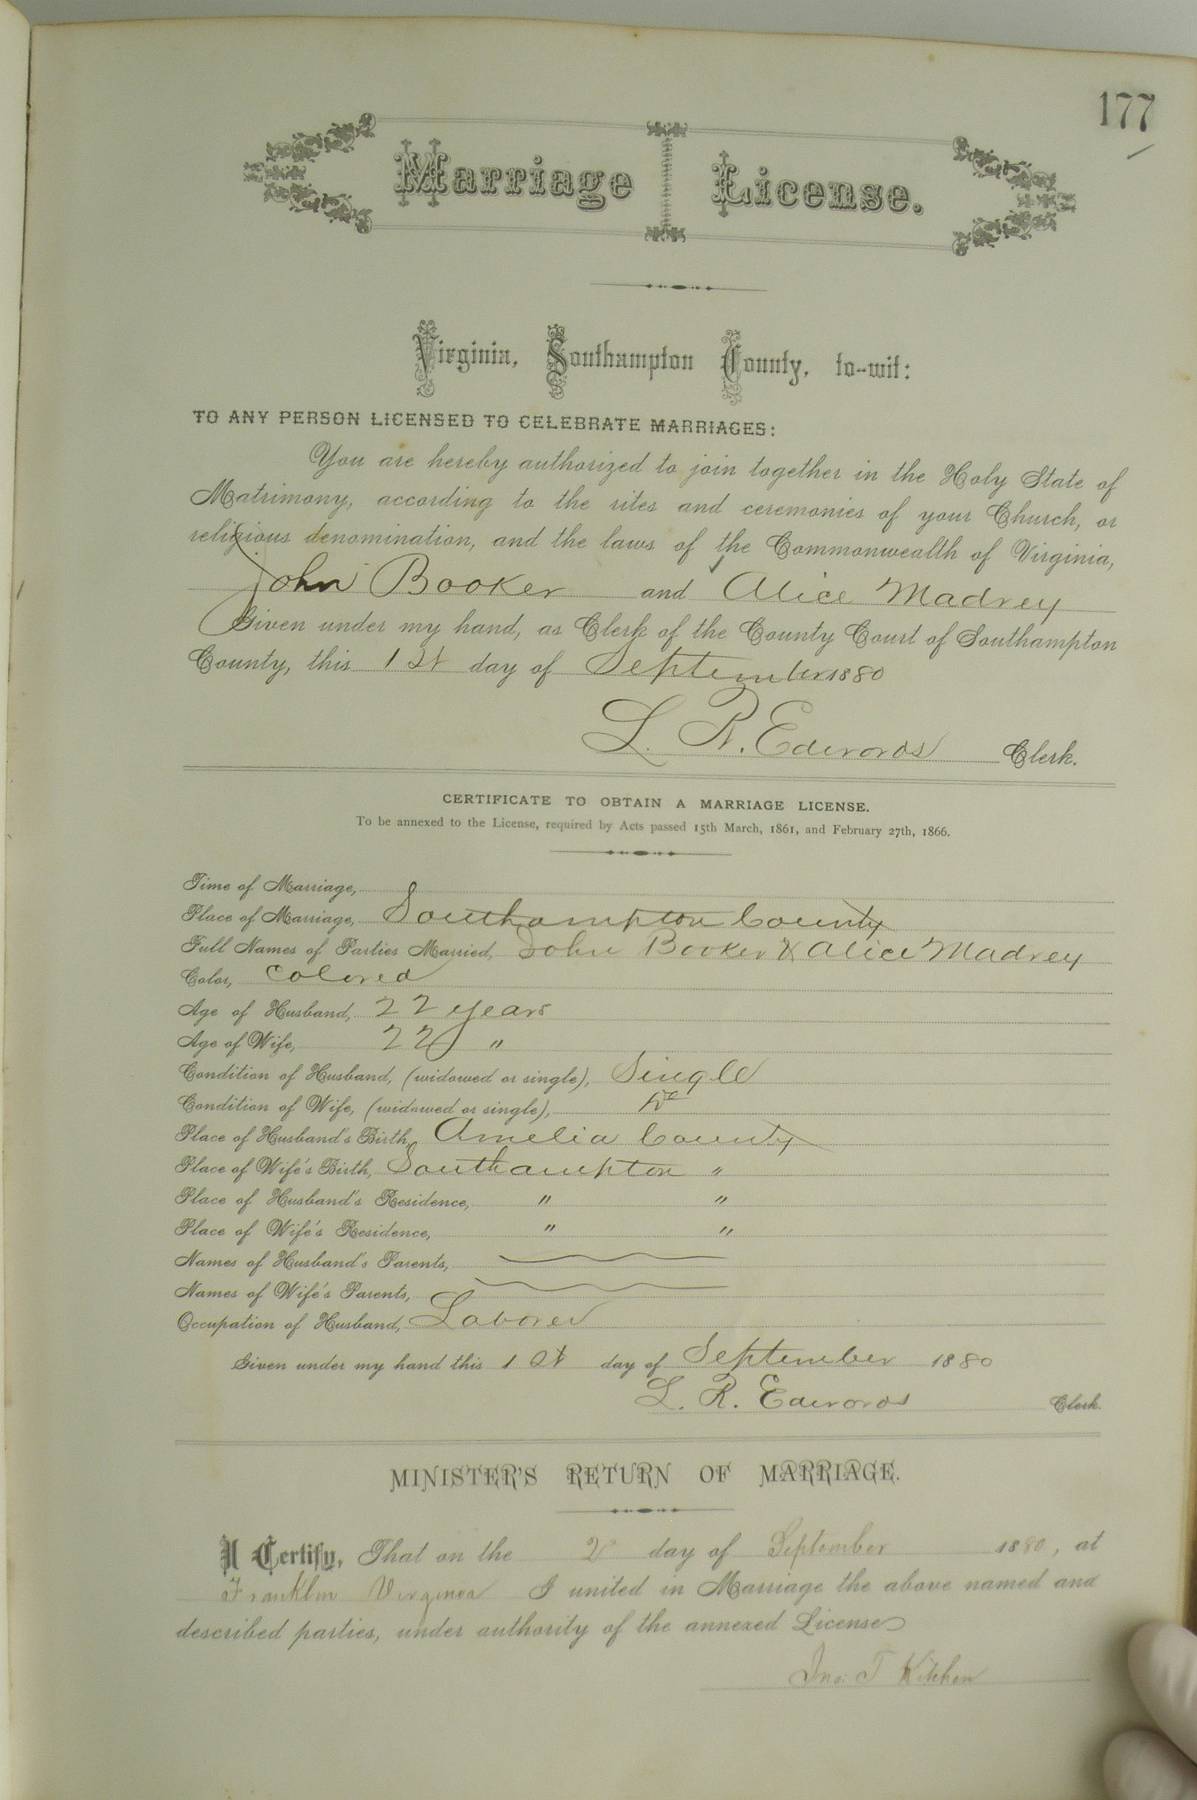 177
Marriage License.
Virginia, Southampton County, to-wit:
TO ANY PERSON LICENSED TO CELEBRATE MARRIAGES:
You are hereby authorized to join together in the Holy State of
Matrimony, according to the rites and ceremonies of your Church, or
religious denomination, and the laws of the Commonwealth of Virginia,
John Booker and Alice Madrey
Given under my hand, as Clerk of the County Court of Southampton
County, this 1st day of September 1880
L. R. Edwards Clerk.
CERTIFICATE TO OBTAIN A MARRIAGE LICENSE.
To be annexed to the License, required by Acts passed 15th March, 1861, and February 27th, 1866.
Time of Marriage,
Place of Marriage, Southampton County
Full Names of Parties Married, John Booker & Alice Madrey
Color, Colored
Age of Husband, 22 years
Age of Wife, 22 "
Condition of Husband, (widowed or single), Single
Condition of Wife, (widowed or single), Do
Place of Husband's Birth, Amelia County
Place of Wife's Birth, Southampton "
Place of Husband's Residence, " "
Place of Wife's Residence, " "
Names of Husband's Parents,
Names of Wife's Parents,
Occupation of Husband, Laborer
Given under my hand this 1st day of September 1880
L. R. Edwards Clerk.
MINISTER'S RETURN OF MARRIAGE.
I Certify, That on the 2 day of September 1880, at
Franklin Virginia I united in Marriage the above named and
described parties, under authority of the annexed License
Jno. T Kitchen